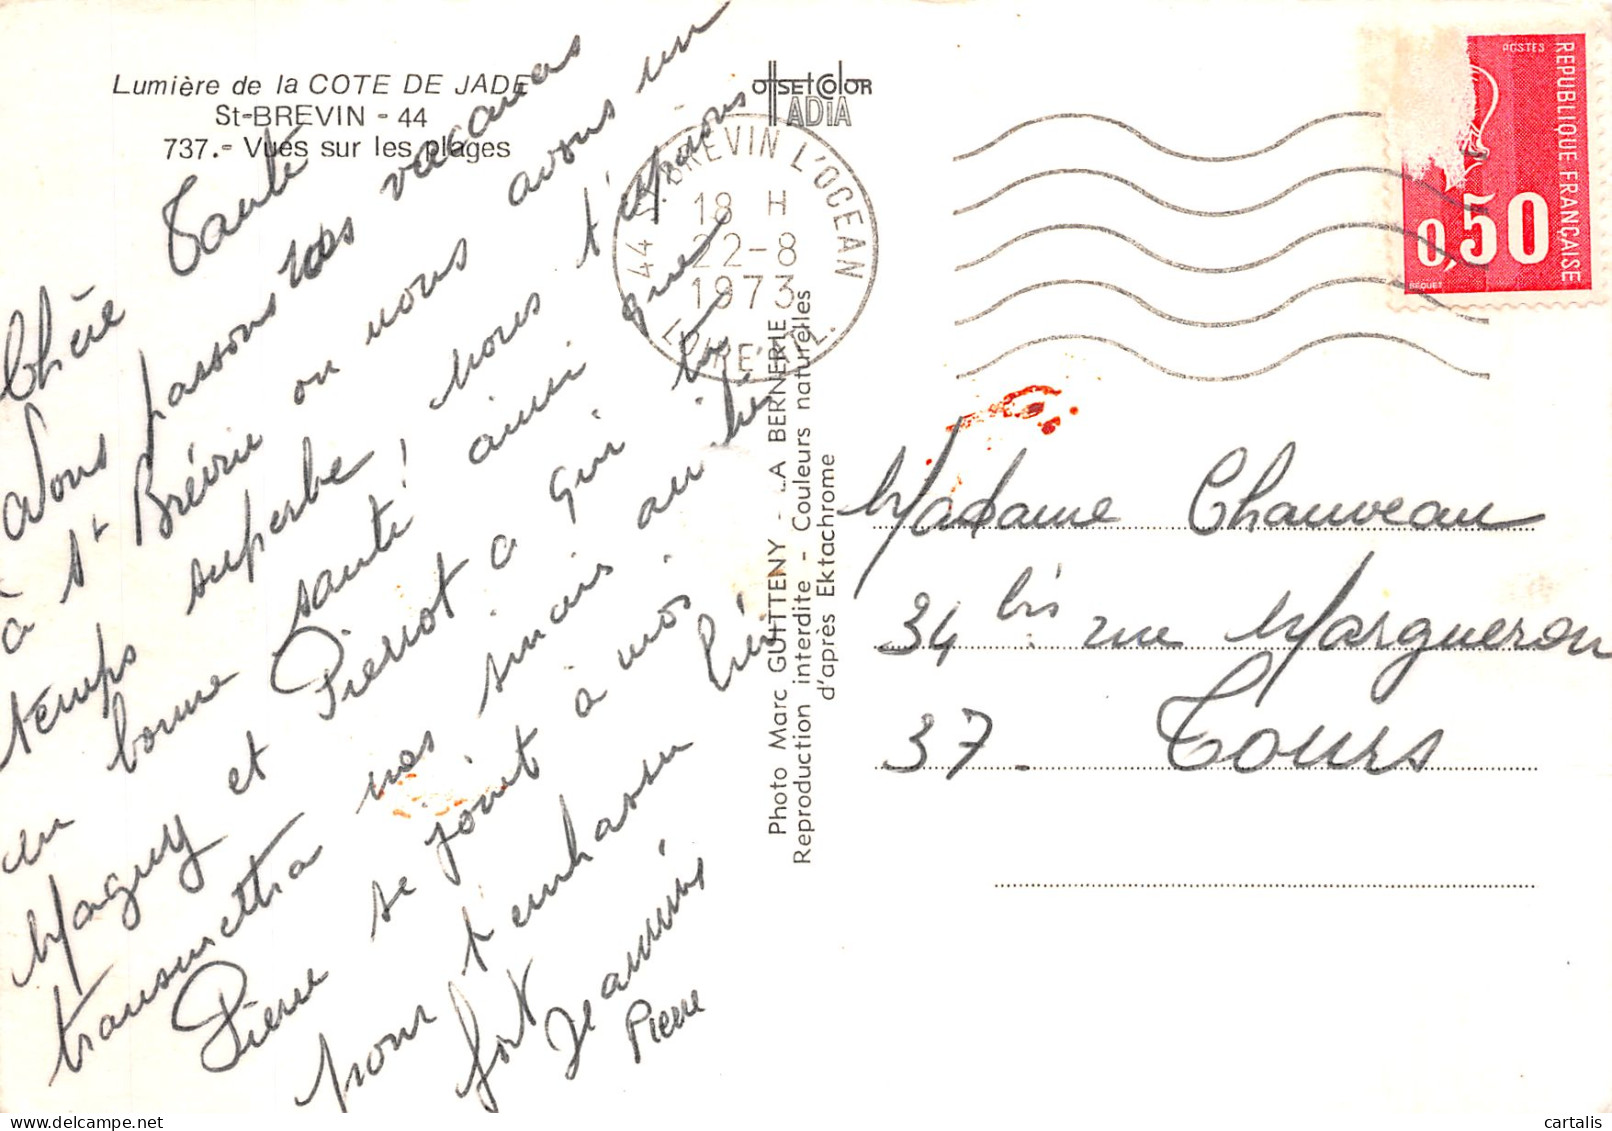 Lumière de la COTE DE JADE
St-BREVIN - 44
737.- Vues sur les plages
OffsetColor
ADIA
Chère Tante
Nous passons nos vacances
à St Brévin ou nous avons un
temps superbe, nous t'espérons
en bonne santé, ainsi que
Maguy et Pierrot à qui tu
transmettra nos amicales
Pierre se joint à moi
pour t'embrasser très
fort
Jeannine
Pierre
Photo Marc GUITTENY - LA BERNERIE
Reproduction interdite - Couleurs naturelles
d'après Ektachrome
44 ST BREVIN L'OCEAN
18 H
22-8
1973
LOIRE ATL.
POSTES
REPUBLIQUE FRANÇAISE
0,50
BEQUET
Madame Chauveau
34 bis rue Margueron
37. Tours
cartalis
www.delcampe.net